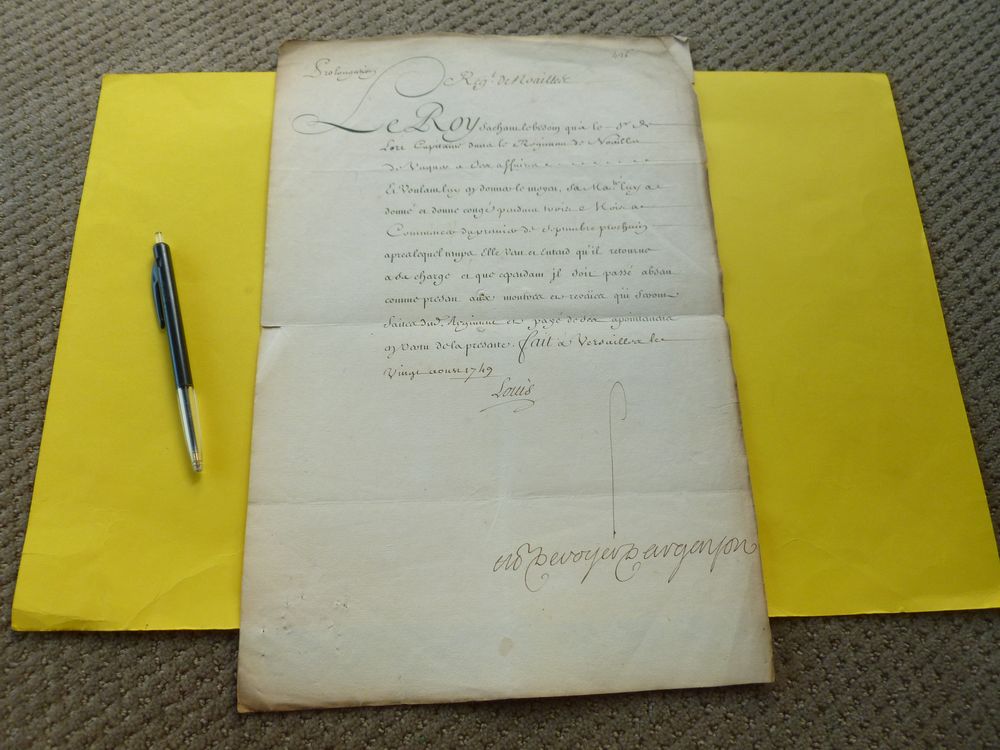 Prolongation
Reg.t de Noailles
Le Roy sachant le besoin qu'a le S.r de
Capitaine dans le Regiment de Noailles
de Vaquer a ses affaires
Et Voulant luy donner le moyen, Sa Ma.té luy a
donné et donne congé pendant trois Mois a
Commencer du premier de Septembre prochain
apres lequel temps Elle Veut et Entend qu'il retourne
a sa charge et que cependant jl soit passé absent
comme present aux montres et reveües qui seront
faites dud. Regiment et payé de ses apointements
en Vertu de la presente. fait a Versailles le
Vingt aoust 1749
Louis
de voyer d'argenson